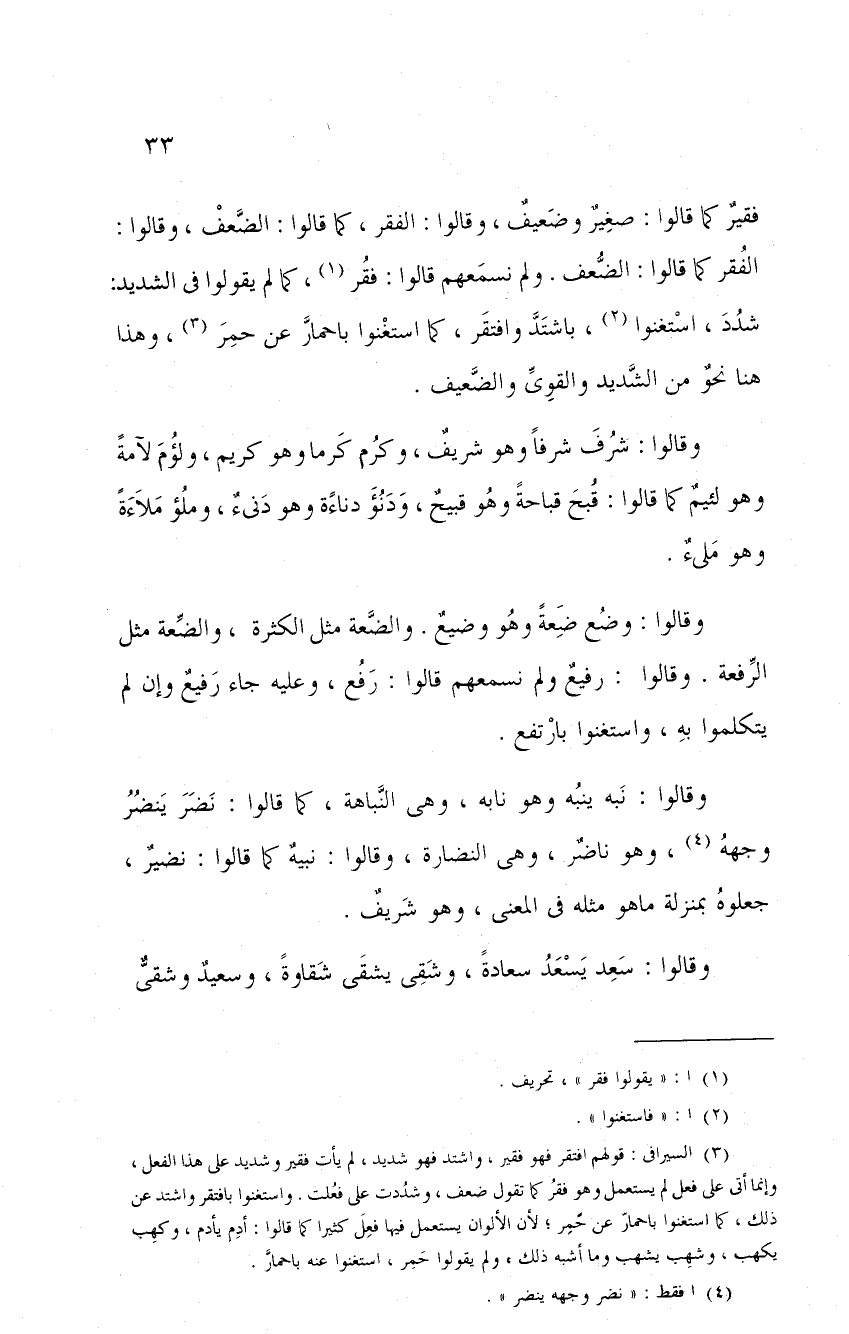 ٣٣
فقيرٌ كما قالوا : صغِيرٌ وضَعيفٌ ، وقالوا : الفقر ، كما قالوا : الضَّعفْ ، وقالوا :
الفُقر كما قالوا : الضُّعف . ولم نسمَعهم قالوا : فقُر (١) ، كما لم يقولوا فى الشديد:
شدُدَ ، اسْتغنوا (٢) ، باشتَدَّ وافتقَر ، كما استغْنوا باحمارَّ عن حمِرَ (٣) ، وهذا
هنا نحوٌ من الشَّديد والقوِىِّ والضَّعيف .
وقالوا : شرُفَ شرفاً وهو شريفٌ ، وكرُم كَرما وهو كريم ، ولؤُمَ لآمةً
وهو لئيمٌ كما قالوا : قُبحَ قباحةً وهُو قبيحٌ ، وَدَنُؤَ دناءًة وهو دَنىءٌ ، وملُؤ مَلاَءَةً
وهو مَلىءٌ .
وقالوا : وضُع ضَِعةً وهُو وضيعٌ . والضَّعة مثل الكثرة ، والضِّعة مثل
الرِّفعة . وقالوا : رفيعٌ ولم نسمعهم قالوا : رَفُع ، وعليه جاء رَفيعٌ وإن لم
يتكلموا بهِ ، واستغنوا بارْتفع .
وقالوا : نَبه ينبُه وهو نابه ، وهى النَّباهة ، كما قالوا : نَضرَ يَنضُرُ
وجههُ (٤) ، وهو ناضرٌ ، وهى النضارة ، وقالوا : نبيهٌ كما قالوا : نضيرٌ ،
جعلوهُ بمنزلة ماهو مثله فى المعنى ، وهو شَريفٌ .
وقالوا : سَعِد يَسْعَدُ سعادةً ، وشَقِى يشقَى شَقاوةً ، وسعيدٌ وشقىٌّ
(١) ا : « يقولوا فقر » ، تحريف .
(٢) ا : « فاستغنوا » .
(٣) السيرافى : قولهم افتقر فهو فقير ، واشتد فهو شديد ، لم يأت فقير وشديد على هذا الفعل ،
وإنما أتى على فعل لم يستعمل وهو فقرُ كما تقول ضعف ، وشدُدت على فعُلت . واستغنوا بافتقر واشتد عن
ذلك ، كما استغنوا باحمارّ عن حَمِر ؛ لأن الألوان يستعمل فيها فعِلَ كثيرا كما قالوا : أدِم يأدم ، وكهِب
يكهب ، وشهِب يشهب وما أشبه ذلك ، ولم يقولوا حَمِر ، استغنوا عنه باحمارَّ .
(٤) ا فقط : « نضر وجهه ينضر » .